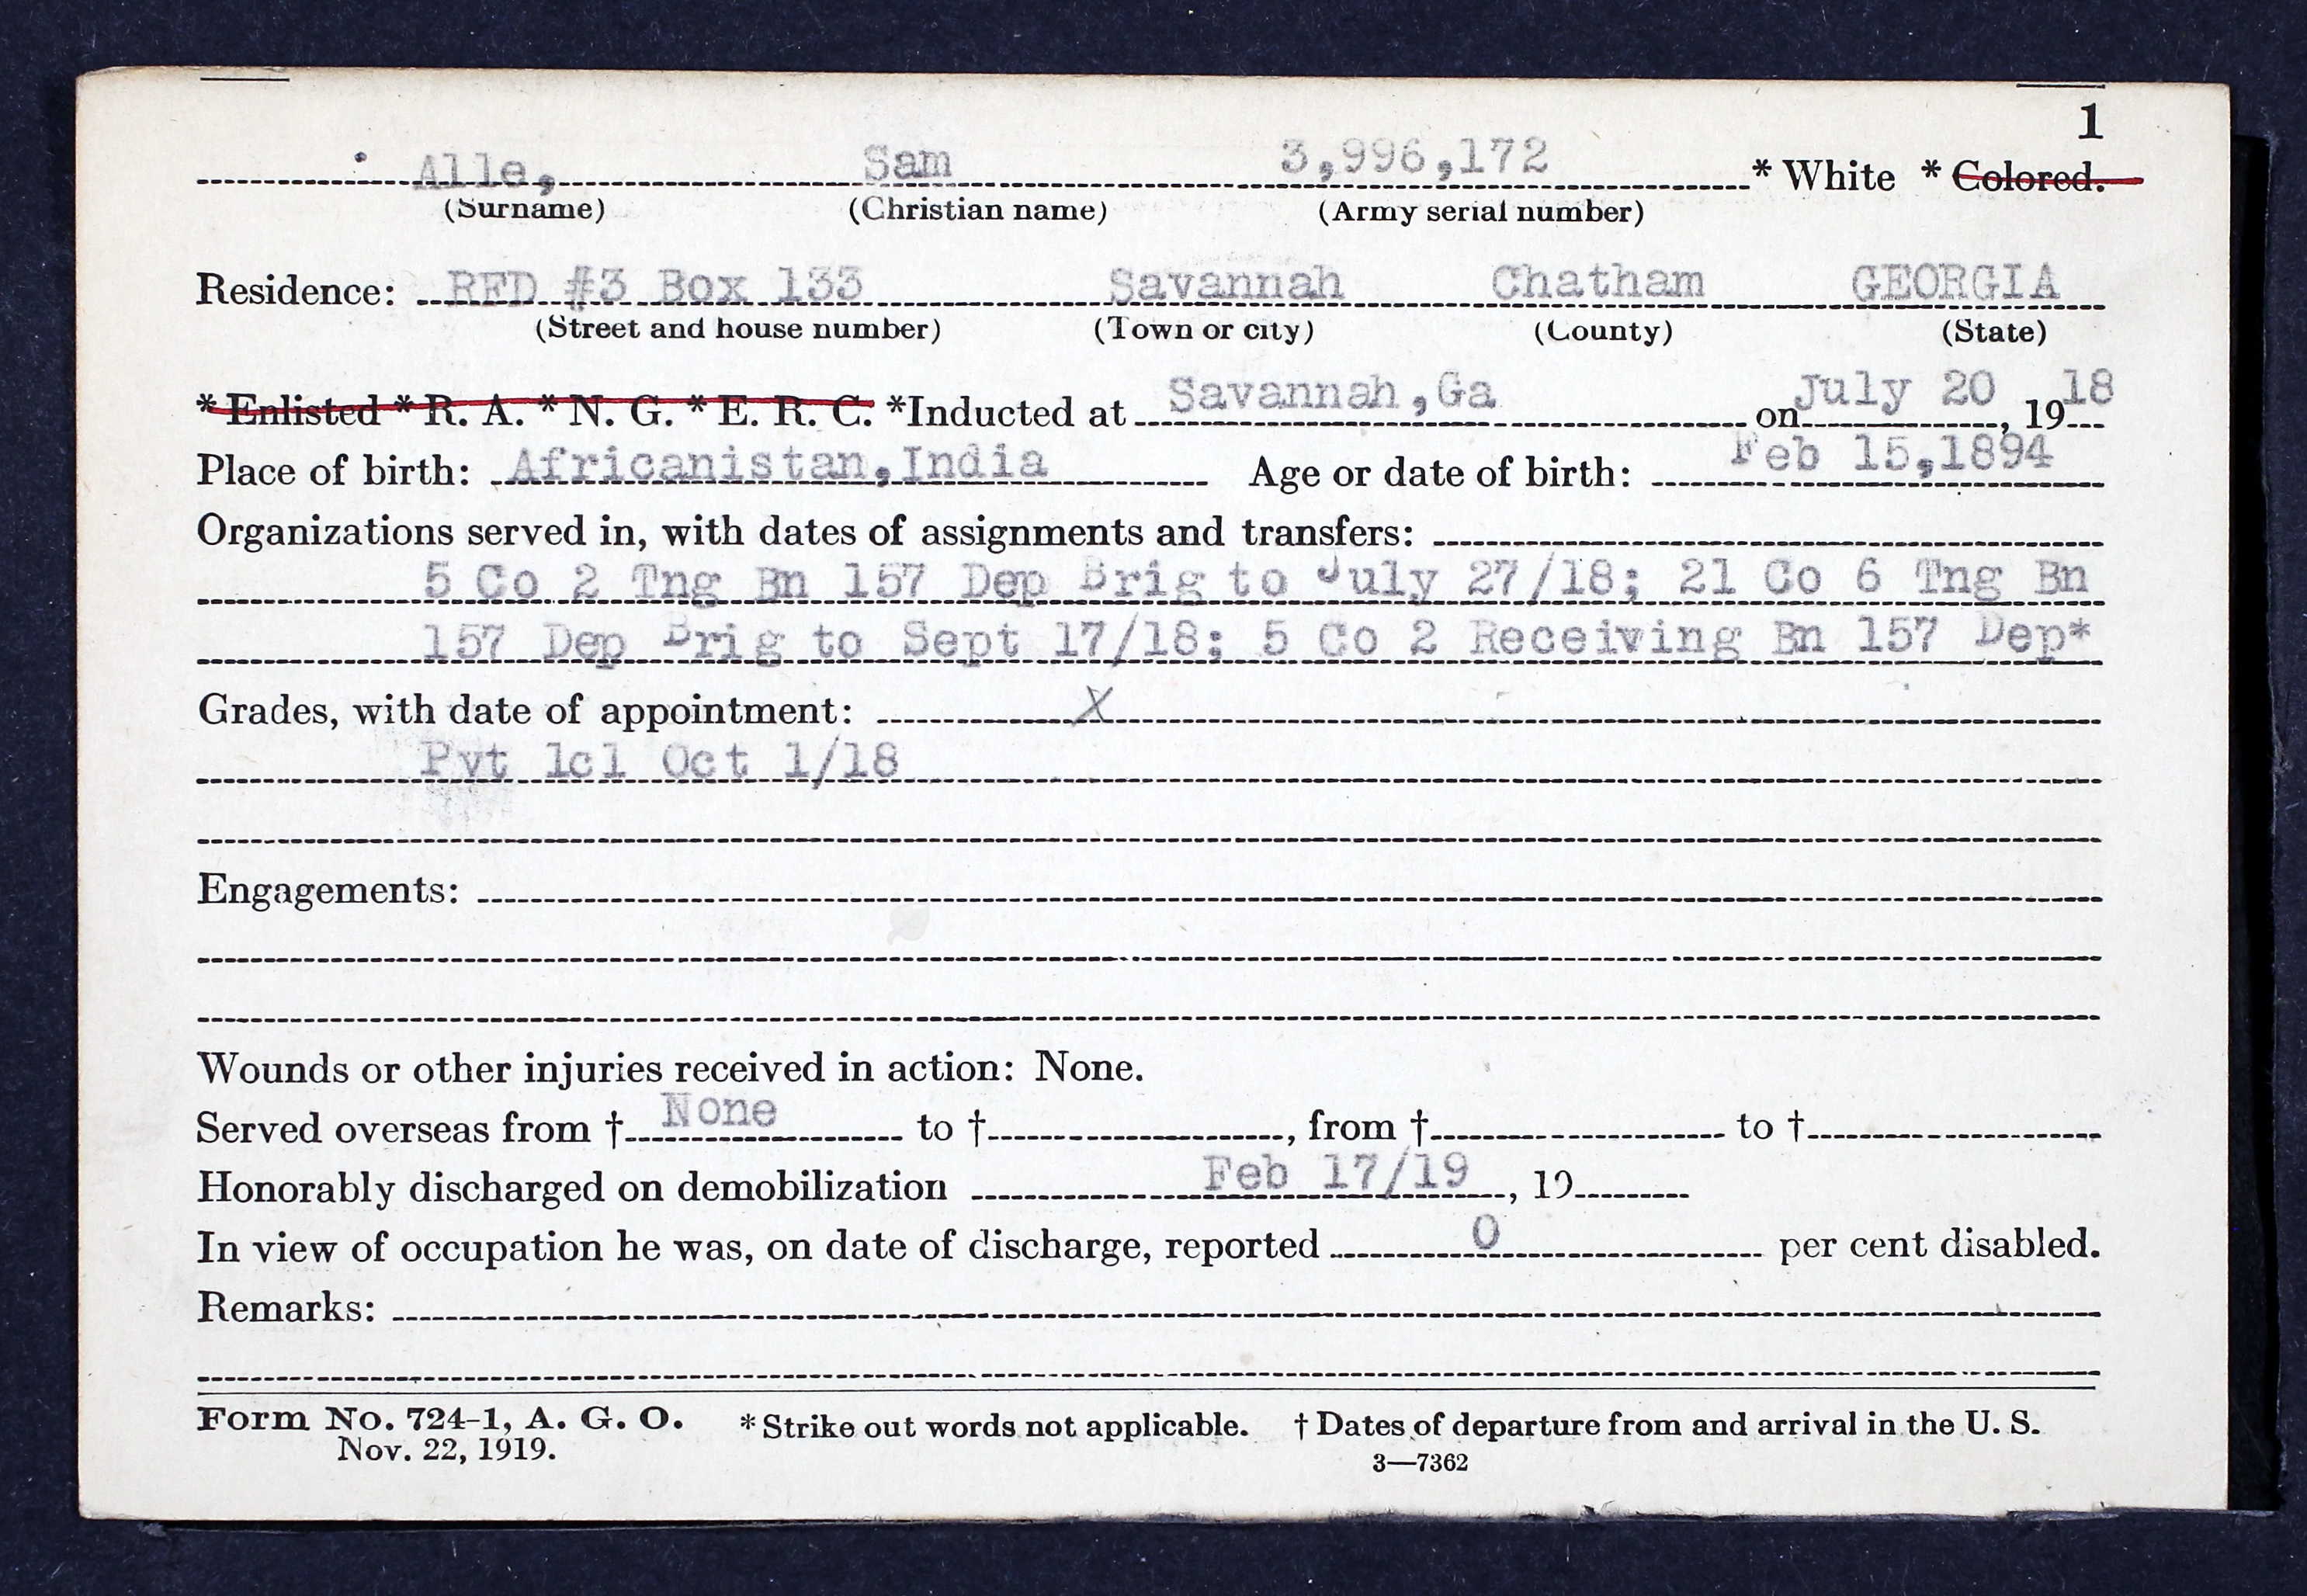 1
Alle, Sam 3,996,172 * White * Colored.
(Surname) (Christian name) (Army serial number)
Residence: RFD #3 Box 133 Savannah Chatham GEORGIA
(Street and house number) (Town or city) (County) (State)
* Enlisted * R. A. * N. G. * E. R. C. *Inducted at Savannah,Ga on July 20, 1918
Place of birth: Africanistan,India Age or date of birth: Feb 15,1894
Organizations served in, with dates of assignments and transfers:
5 Co 2 Tng Bn 157 Dep Brig to July 27/18; 21 Co 6 Tng Bn
157 Dep Brig to Sept 17/18; 5 Co 2 Receiving Bn 157 Dep*
Grades, with date of appointment: X
Pvt 1cl Oct 1/18
Engagements:
Wounds or other injuries received in action: None.
Served overseas from † None to †, from † to †
Honorably discharged on demobilization Feb 17/19, 19
In view of occupation he was, on date of discharge, reported 0 per cent disabled.
Remarks:
Form No. 724-1, A. G. O. * Strike out words not applicable. † Dates of departure from and arrival in the U. S.
Nov. 22, 1919. 3—7362